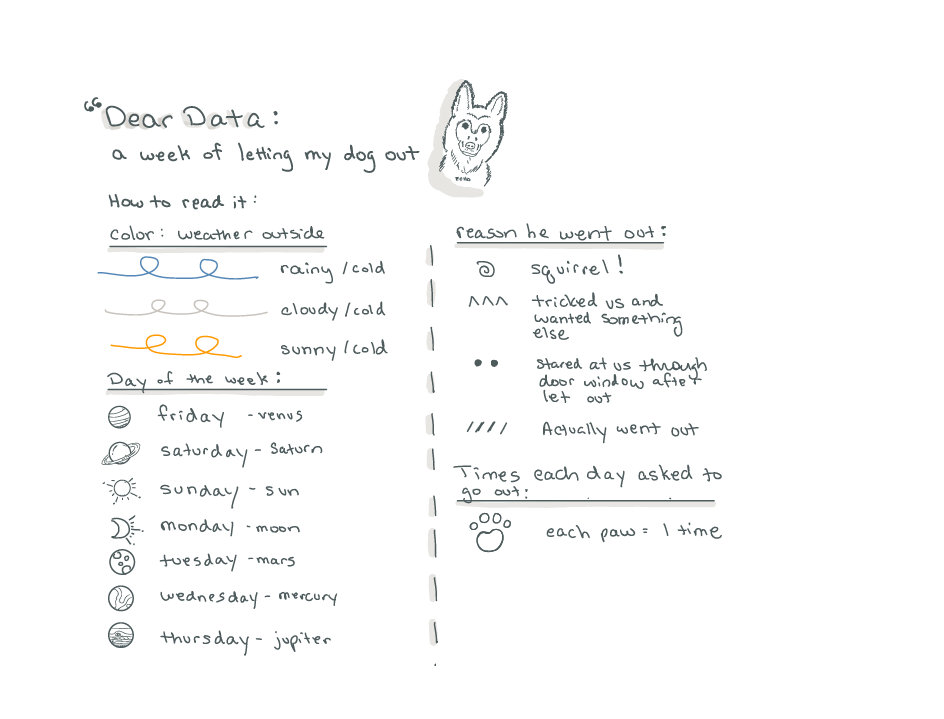 “Dear Data:
a week of letting my dog out
How to read it:
Color: weather outside
rainy/cold
cloudy/cold
sunny/cold
Day of the week:
friday - venus
saturday - Saturn
sunday - sun
monday - moon
tuesday - mars
wednesday - mercury
thursday - jupiter
reason he went out:
squirrel!
tricked us and
wanted something
else
Stared at us through
door window after
let out
Actually went out
Times each day asked to
go out:
each paw = 1 time